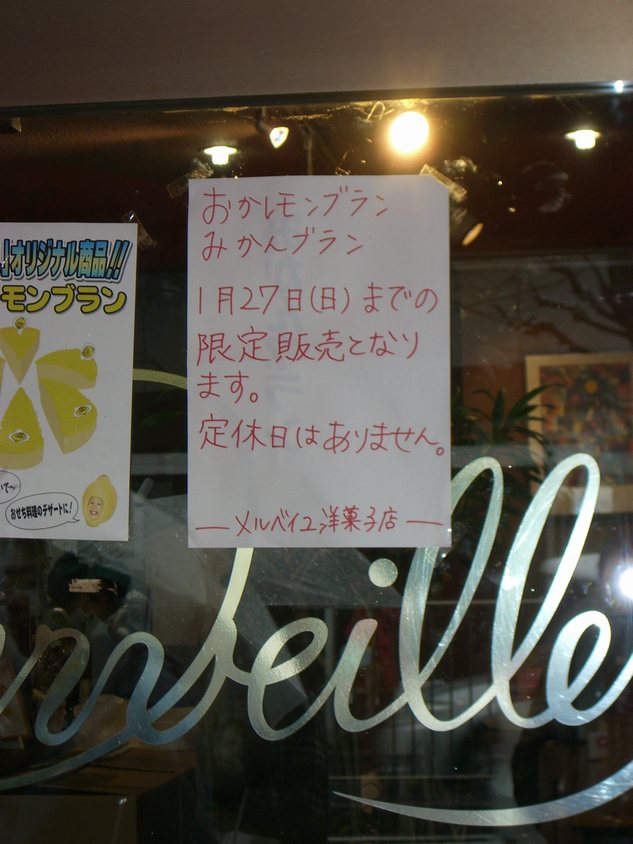 おかしモンブラン
みかんブラン
1月27日(日)までの
限定販売となり
ます。
定休日はありません。
― メルベイユ洋菓子店 ―
オリジナル商品!!
モンブラン
おせち料理のデザートに!
erveille